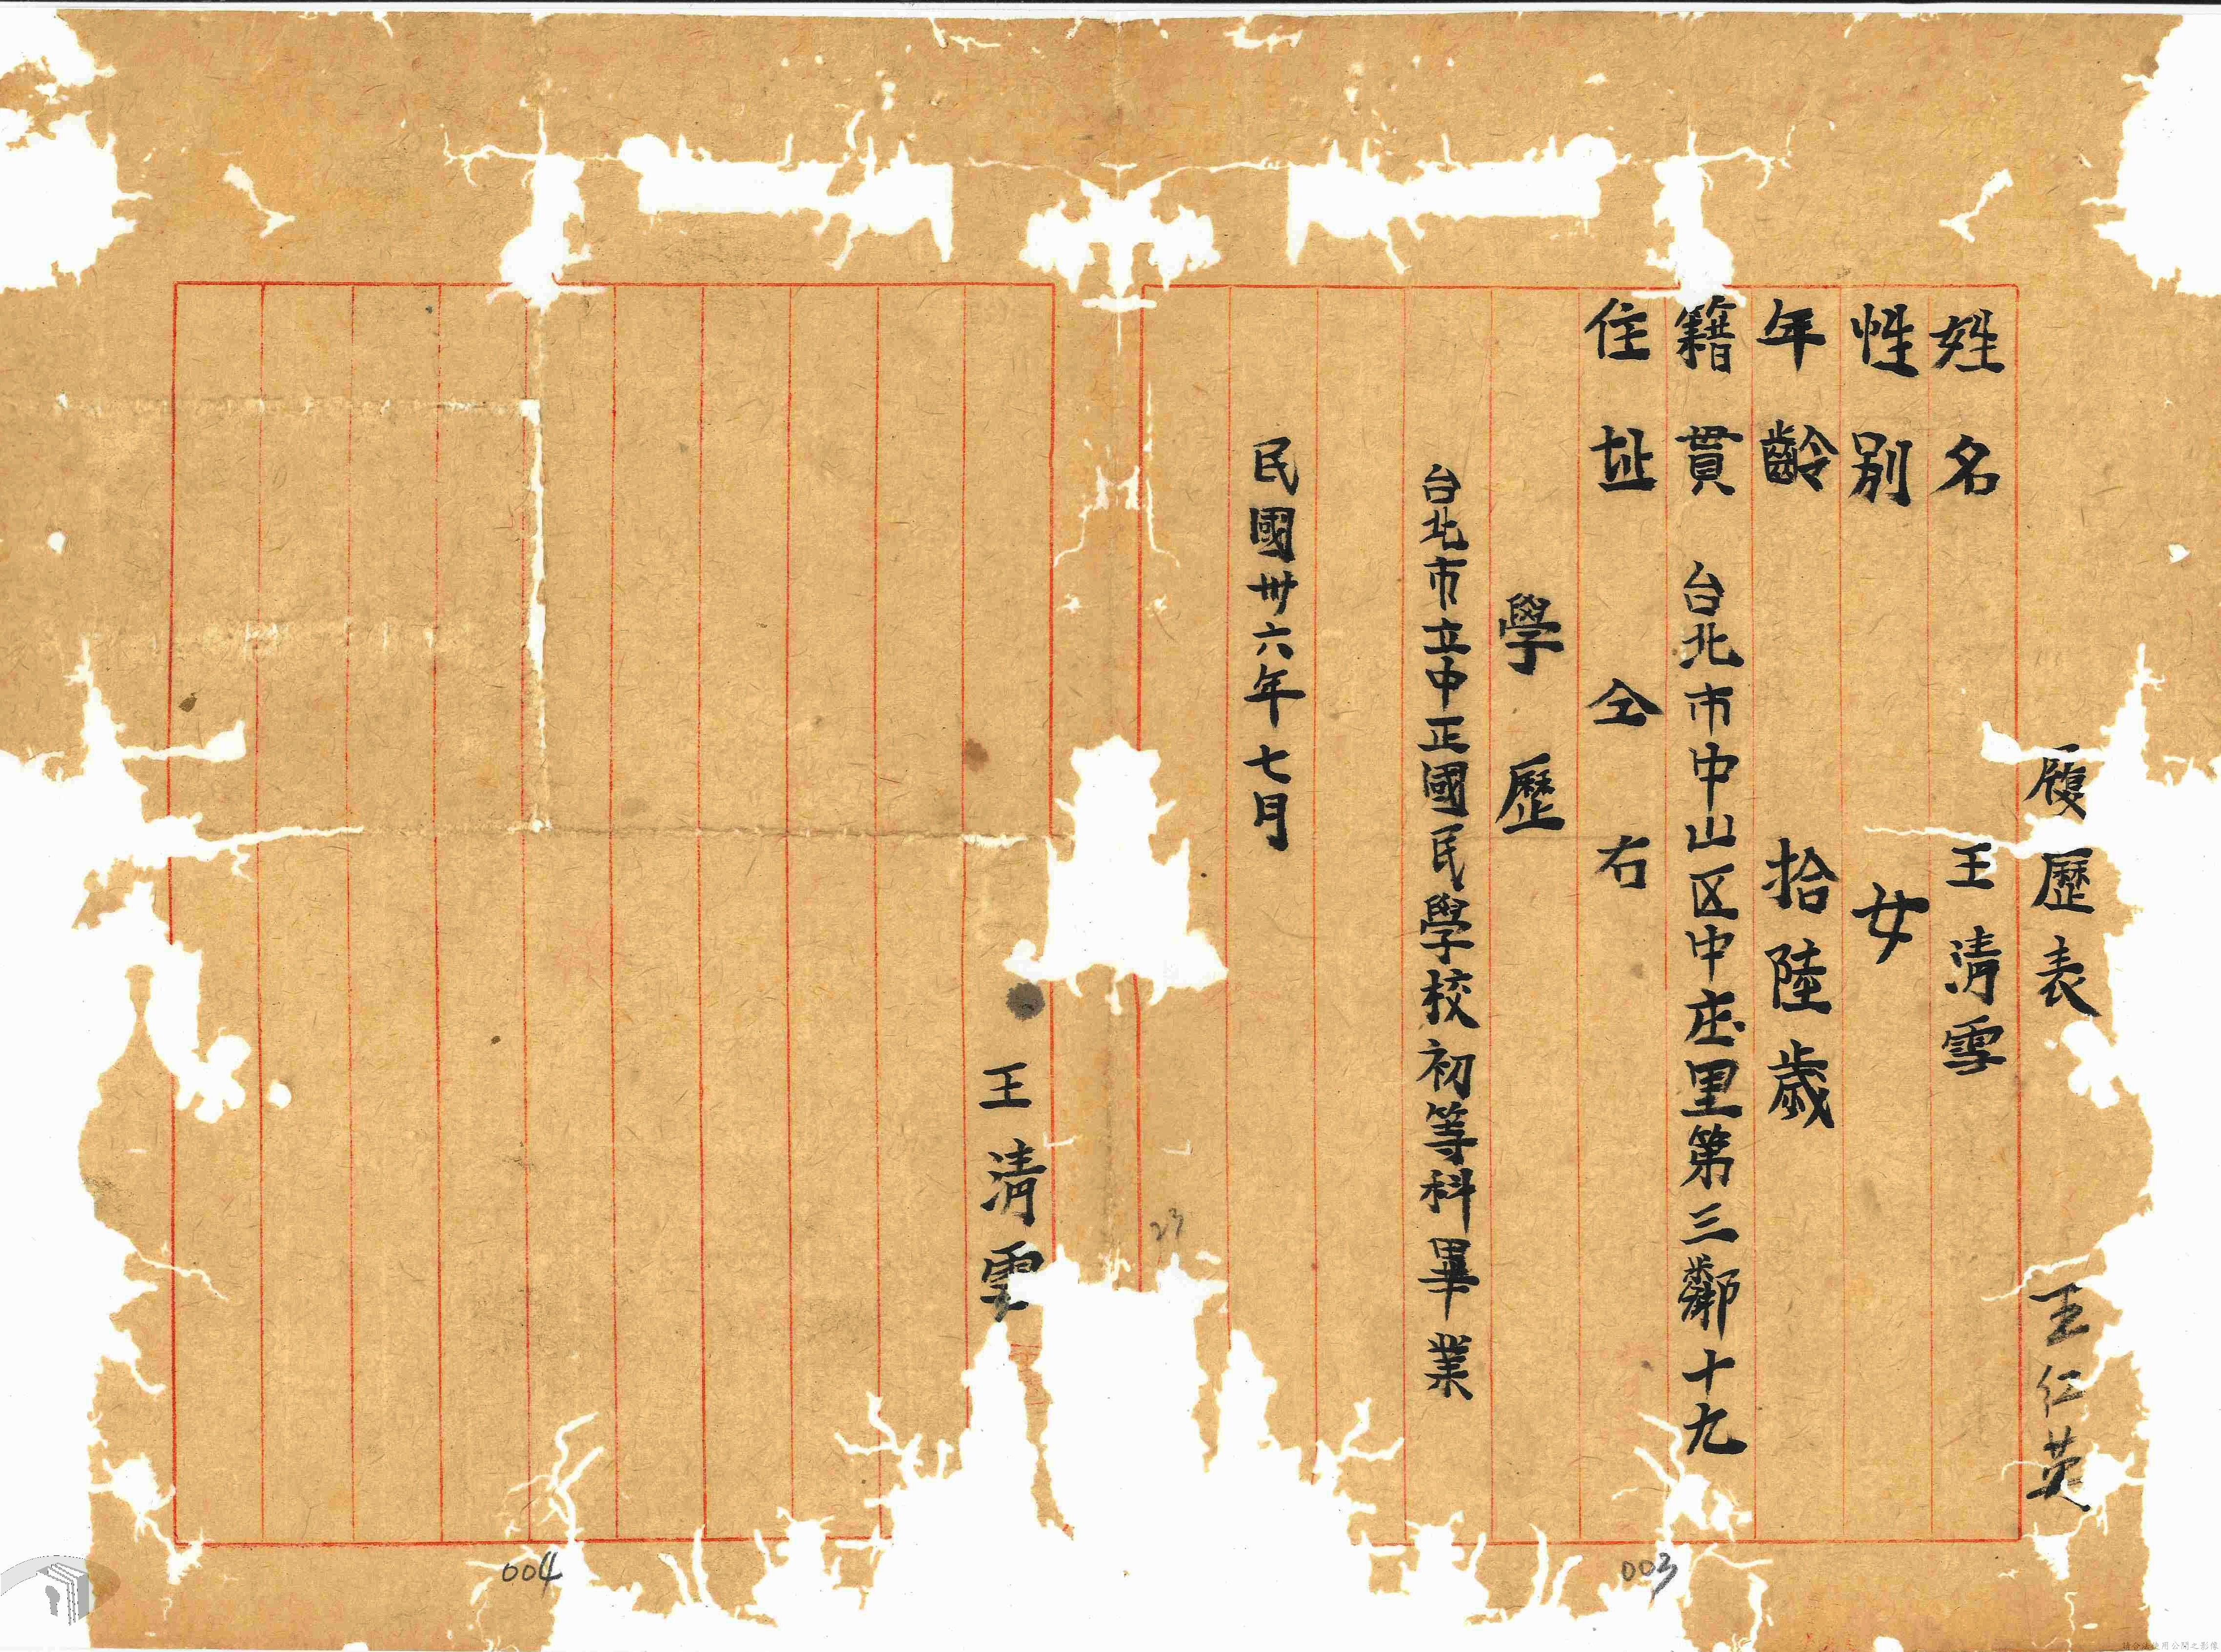 履歷表 王仁英
姓名 王清雪
性別 女
年齡 拾陸歲
籍貫 台北市中山区中庄里第三鄰十九
住址 仝右
學歷
台北市立中正國民學校初等科畢業
民國卅六年七月
王清雪
23
003
004